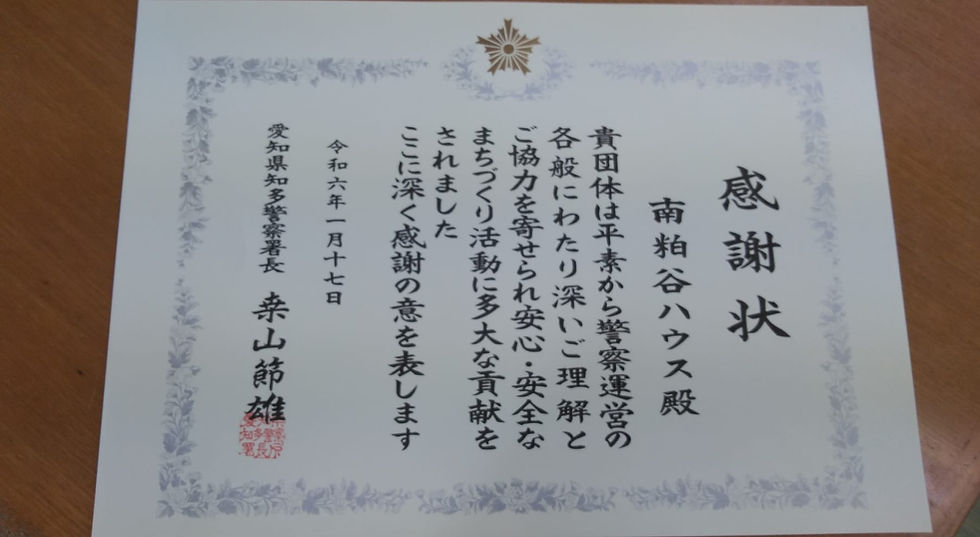 感謝状
南粕谷ハウス殿
貴団体は平素から警察運営の
各般にわたり深いご理解と
ご協力を寄せられ安心・安全な
まちづくり活動に多大な貢献を
されました
ここに深く感謝の意を表します
令和六年一月十七日
愛知県知多警察署長 桒山節雄